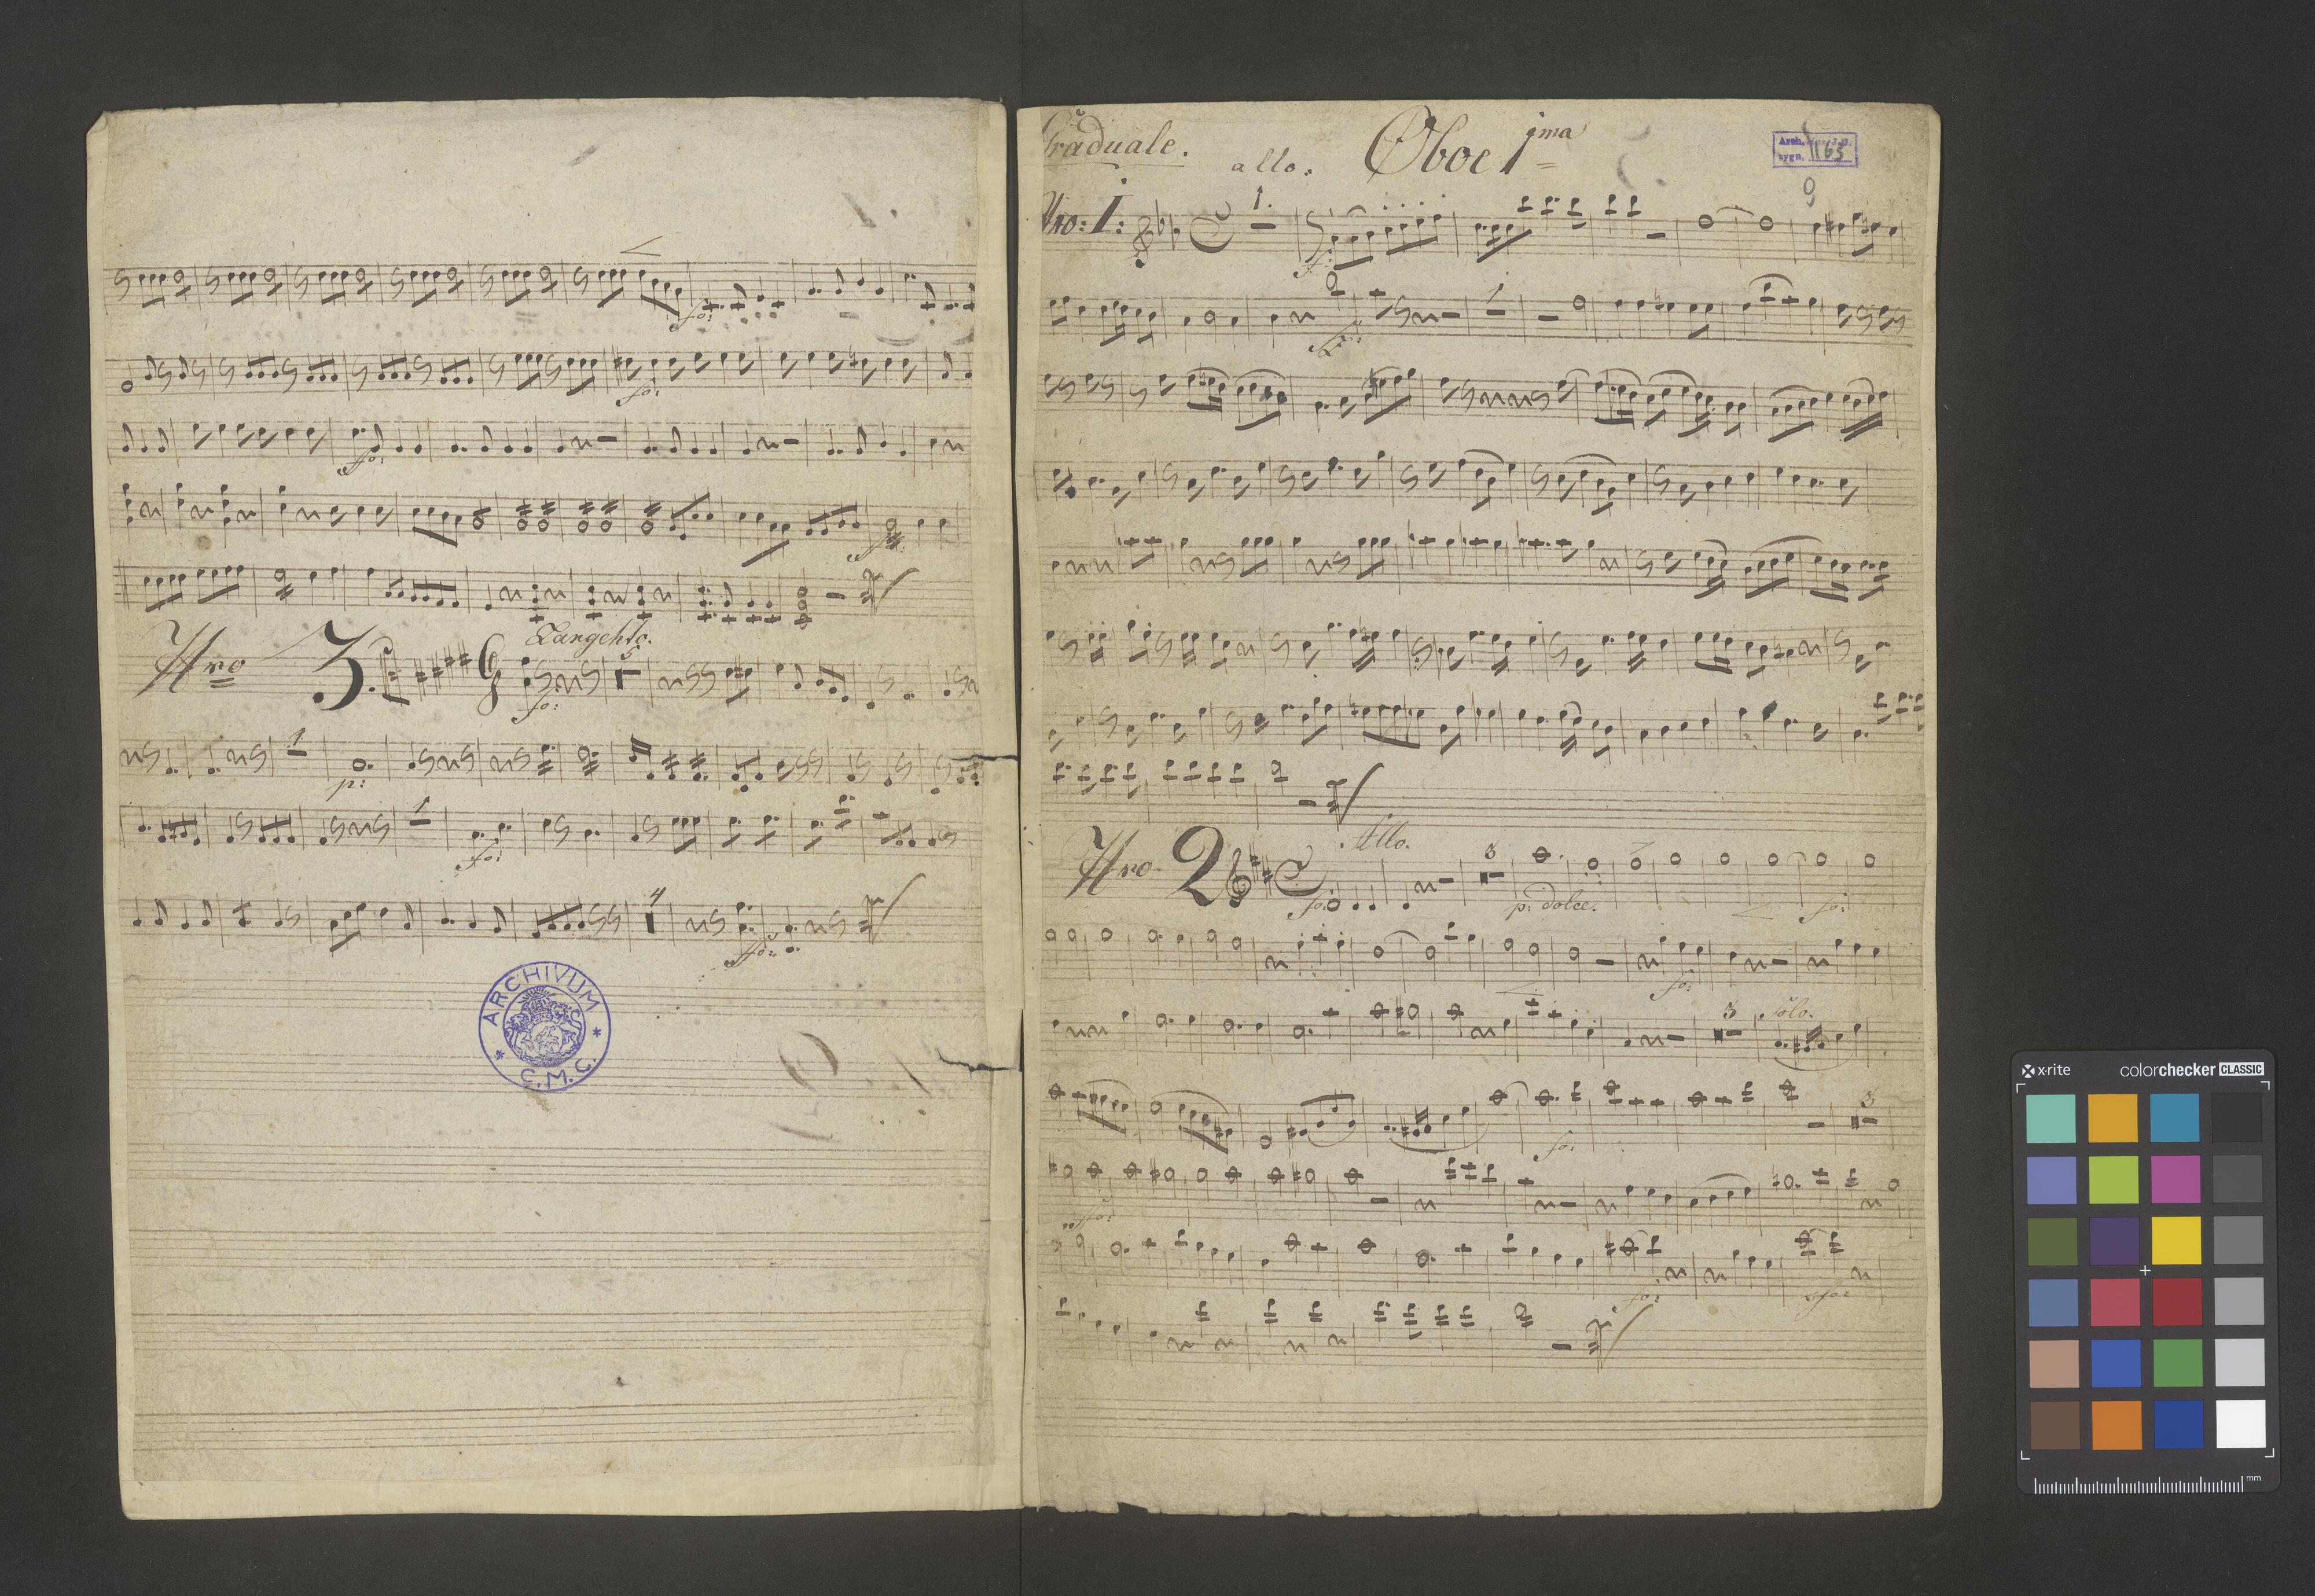 fo:
fo:
ffo:
Nro 3. 6 8 Langehto.
fo: 5
1
p:
1
fo:
4
ffo:
ARCHIVUM
* C.M.C. *
Graduale. allo: Oboe 1ma
Arch.
sygn. 1163
9
Nro: I: 1.
f:
1
Nro 2 Allo.
3
fo: p: dolce. fo:
fo:
3 Solo.
3
fo:
fo: sfo:
x-rite colorchecker CLASSIC
mm